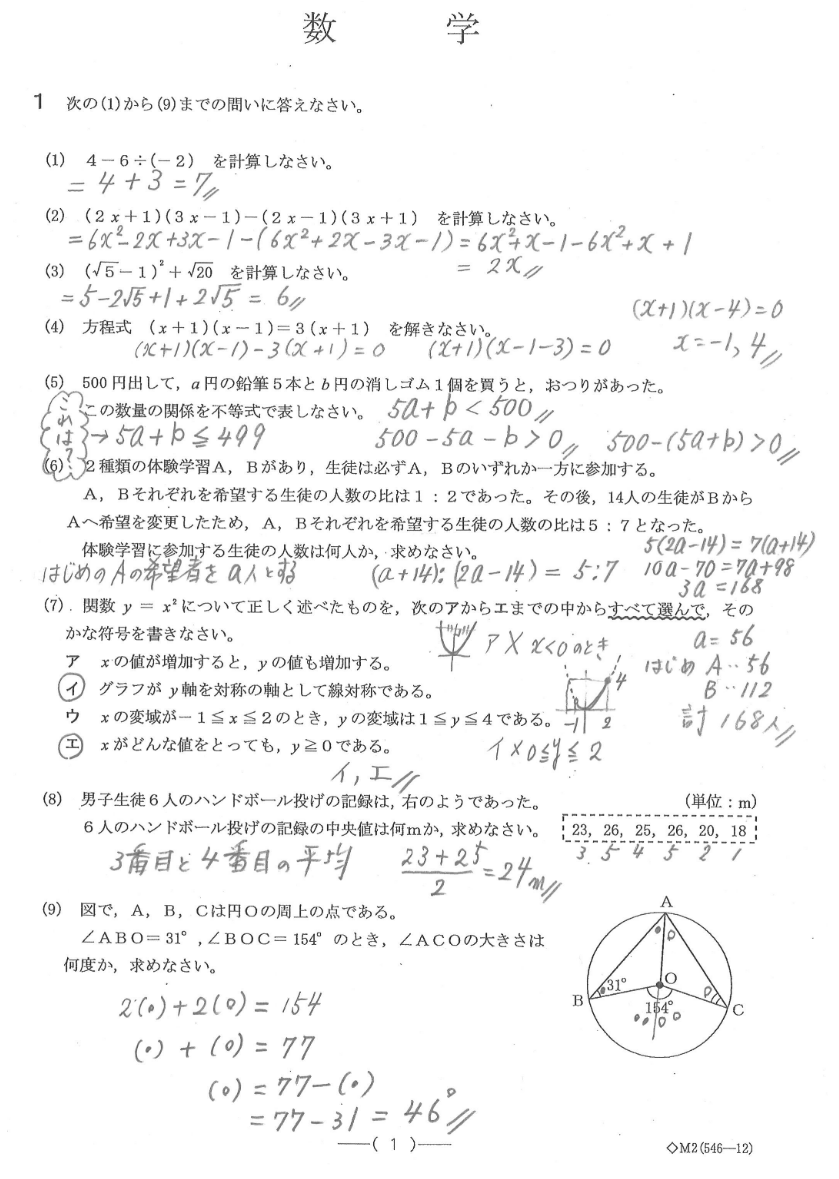 数　学
1　次の(1)から(9)までの問いに答えなさい。
(1)　４－６÷(－２)　を計算しなさい。
= 4 + 3 = 7〃
(2)　(２x＋１)(３x－１)－(２x－１)(３x＋１)　を計算しなさい。
=6x²-2x+3x-1-(6x²+2x-3x-1)=6x²+x-1-6x²+x+1
= 2x〃
(3)　(√5－１)²＋√20　を計算しなさい。
=5-2√5+1+2√5 = 6〃
(x+1)(x-4)=0
(4)　方程式　(x＋１)(x－１)＝３(x＋１)　を解きなさい。
(x+1)(x-1)-3(x+1)=0　(x+1)(x-1-3)=0　x=-1, 4〃
(5)　500円出して，a円の鉛筆５本とb円の消しゴム１個を買うと，おつりがあった。
この数量の関係を不等式で表しなさい。　5a+b<500〃
これは？→5a+b≦499　500-5a-b>0〃　500-(5a+b)>0〃
(6)　２種類の体験学習Ａ，Ｂがあり，生徒は必ずＡ，Ｂのいずれか一方に参加する。
Ａ，Ｂそれぞれを希望する生徒の人数の比は１：２であった。その後，14人の生徒がＢから
Ａへ希望を変更したため，Ａ，Ｂそれぞれを希望する生徒の人数の比は５：７となった。
体験学習に参加する生徒の人数は何人か，求めなさい。　5(2a-14)=7(a+14)
はじめのAの希望者をa人とする　(a+14):(2a-14)=5:7　10a-70=7a+98
3a=168
(7)．関数 y ＝ x²について正しく述べたものを，次のアからエまでの中からすべて選んで，その
かな符号を書きなさい。　ア×x<0のとき　a=56
ア　xの値が増加すると，yの値も増加する。　はじめ A‥56
イ　グラフがy軸を対称の軸として線対称である。　4　B‥112
ウ　xの変域が－１≦x≦２のとき，yの変域は１≦y≦４である。　-1　2　計 168人〃
エ　xがどんな値をとっても，y≧０である。　イ×0≦y≦2
イ，エ〃
(8)　男子生徒６人のハンドボール投げの記録は，右のようであった。　(単位：m)
６人のハンドボール投げの記録の中央値は何mか，求めなさい。　23，26，25，26，20，18
3　5　4　5　2　1
3番目と4番目の平均　23+25/2=24m〃
(9)　図で，Ａ，Ｂ，Ｃは円Ｏの周上の点である。　A
∠ＡＢＯ＝31°，∠ＢＯＣ＝154°のとき，∠ＡＣＯの大きさは
何度か，求めなさい。
31°　O
B　154°　C
2(•)+2(○)=154
(•)+(○)=77
(○)=77-(•)
=77-31=46°〃
――( 1 )――
◇M2(546―12)